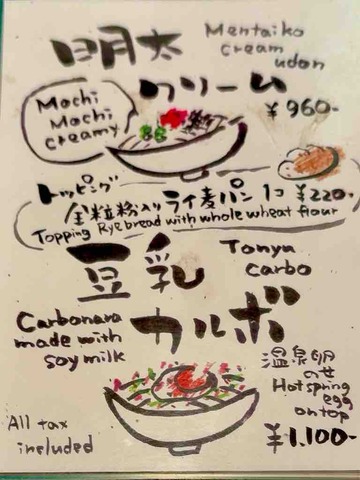 明太
Mentaiko
cream
udon
クリーム
Mochi
Mochi
creamy
¥960-
トッピング
全粒粉入りライ麦パン 1コ ¥220-
Topping Rye bread with whole wheat flour
豆乳
Tonyu
carbo
カルボ
Carbonara
made with
soy milk
温泉卵
のせ
Hot spring
egg
on top
¥1,100-
All tax
included